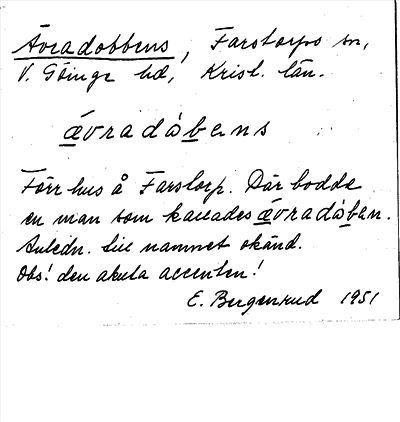 Ävradobbens, Farstorps sn,
V. Göinge hd, Krist. län.
ævradàbens
Förr hus å Farstorp. Där bodde
en man som kallades ævradàben.
Anledn. till namnet okänd.
Obs! den akuta accenten!
E. Bergenrud 1951